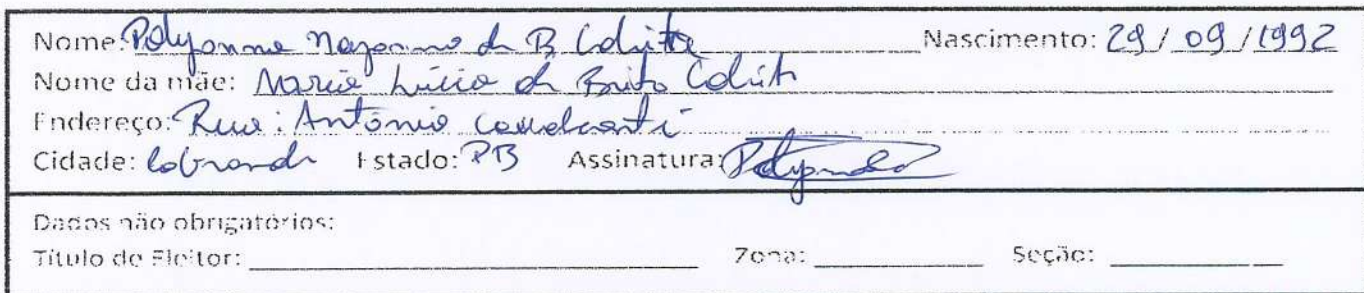 Nome: Polyanna Nazanno de B Nascimento: 29/09/1992
Nome da mãe: Maria Lúcia de Brito
Endereço: Rua: Antônio Cavalcanti
Cidade: Estado: PB Assinatura:
Dados não obrigatórios:
Título de Eleitor: Zona: Seção: